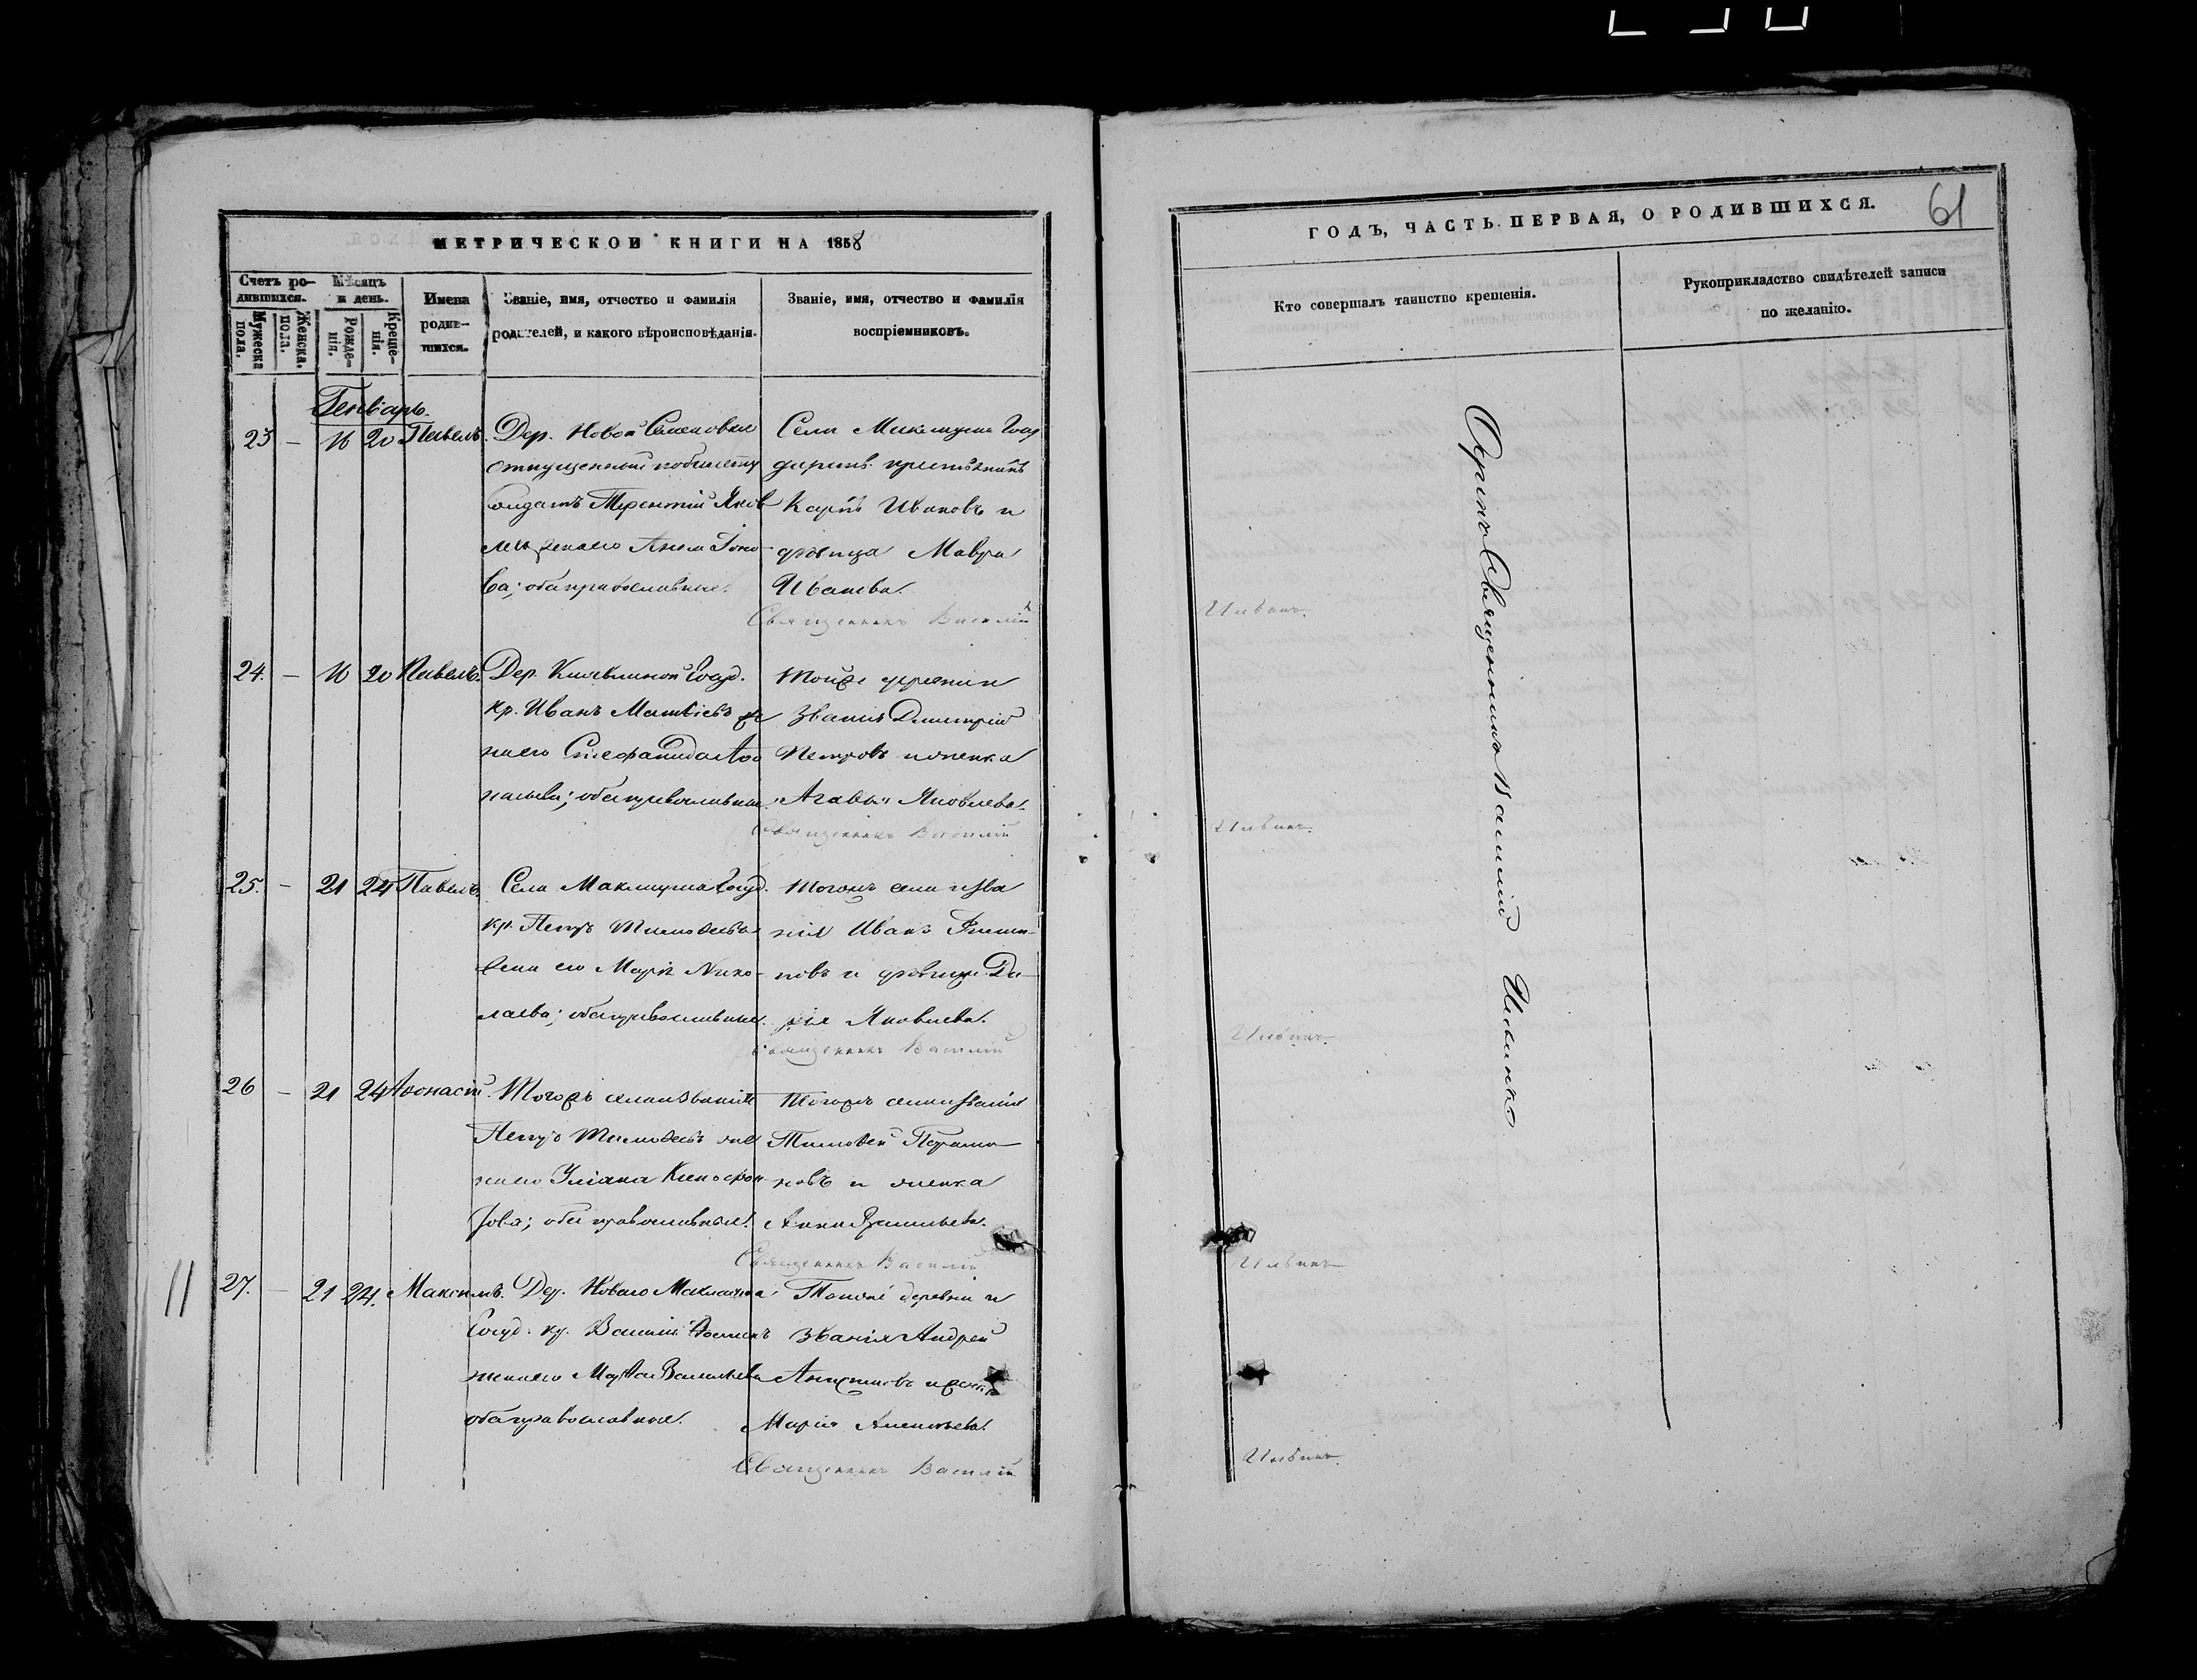 МЕТРИЧЕСКОЙ КНИГИ НА 1858
Счетъ ро-
дившихся.
Мужеска
пола.
Женска.
пола.
Мѣсяцъ
и день.
Рожде-
нія.
Креще-
нія.
Имена
родив-
шихся.
Званіе, имя, отчество и фамилія
родителей, и какого вѣроисповѣданія.
Званіе, имя, отчество и фамилія
воспріемниковъ.
Генварь.
23 — 16 20 Павелъ.
Дер. Новой Семеновки
отпущенный по билету
солдатъ Терентій Яков
жена его Анна
ва; оба православные.
Села Государ
дарств. крестьянинъ
Карпъ Ивановъ и
дѣвица Мавра
Иванова.
Священникъ Василій
24. — 16 20 Павелъ.
Дер. Госуд.
кр. Иванъ Матвѣевъ же
на его Стефанида Аѳо
насьева; оба православные
Тойже деревни и
званія Димитрій
Петровъ и женка
Агавья Яковлева.
Священникъ Василій
25. — 21 24 Павелъ.
Села Маклауша Госуд.
кр. Петръ Тимоѳеевъ
жена его Марія Нико-
лаева; оба православные.
Тогожъ села и зва
нія Иванъ Филип-
повъ и дѣвица Да-
рія Яковлева.
Священникъ Василій
26 — 21 24 Аѳонасій.
Тогожъ села и званія
Петръ Тимоѳеевъ же
на его Уліана Ксенофон
това; оба православные.
Тогожъ села и званія
Тимоѳей
новъ и женка
Анна Васильева.
Священникъ Василій
11
27. — 21 24. Максимъ.
Дер. Новаго Маклауша
Госуд. кр. Василій
жена его Марѳа Васильева
оба православные.
Тойже деревни и
званія Андрей
и женка
Марія
Священникъ Василій
ГОДЪ, ЧАСТЬ ПЕРВАЯ, О РОДИВШИХСЯ.
61
Кто совершалъ таинство крещенія.
Рукоприкладство свидѣтелей записи
по желанію.
Священникъ Василій Ивинъ
Ивинъ.
Ивинъ.
Ивинъ.
Ивинъ
Ивинъ.